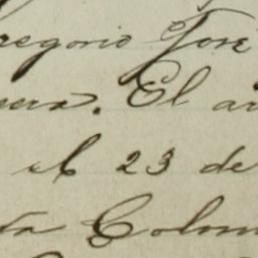 regorio José
era. El a
el 23 de
ta Colom